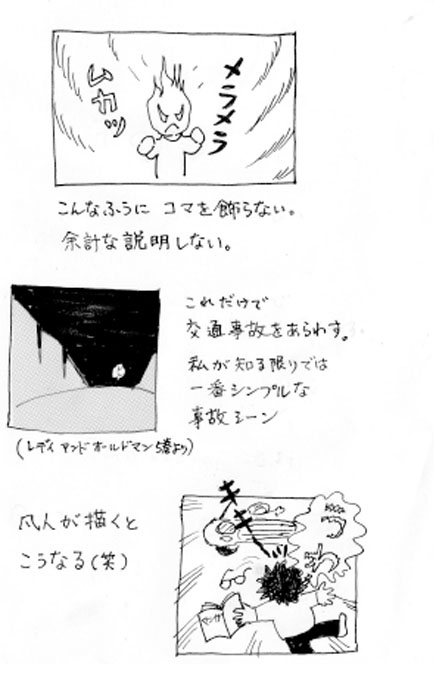 メラメラ
ムカッ
こんなふうに コマを飾らない。
余計な説明しない。
これだけで
交通事故をあらわす。
私が知る限りでは
一番シンプルな
事故シーン
(レディ アンド オールドマン 5巻より)
凡人が描くと
こうなる(笑)
キキ
マンガ